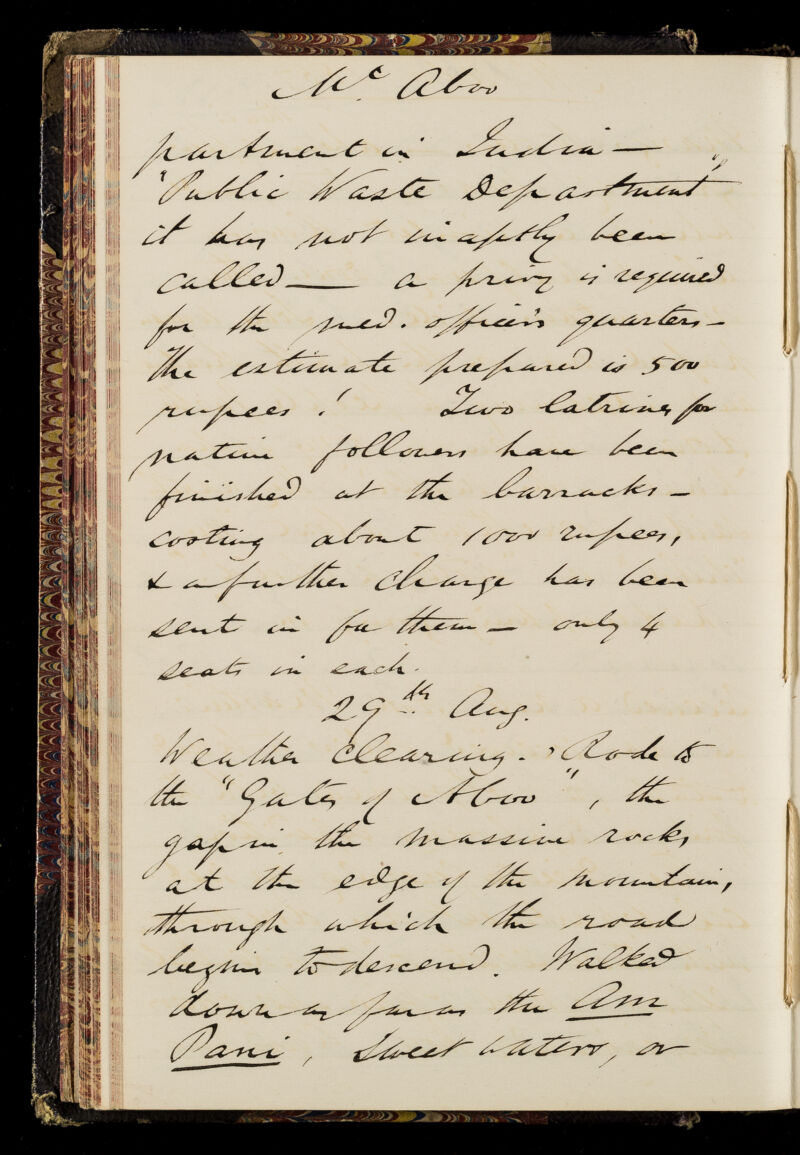 Mt. Aboo
partment in India —
"Public Waste Department"
it has not inaptly been
called — a privy is required
for the med. officer's quarters —
The estimate prepared is 500
rupees! Two latrines for
native followers have been
finished at the barracks —
costing about 1000 rupees,
& a further charge has been
sent in for them — only 4
seats in each.
29th Aug.
Weather clearing. Rode to
the "Gates of Aboo", the
gap in the massive rocks
at the edge of the mountain,
through which the road
begins to descend. Walked
down as far as the Am
Pani, sweet waters, or